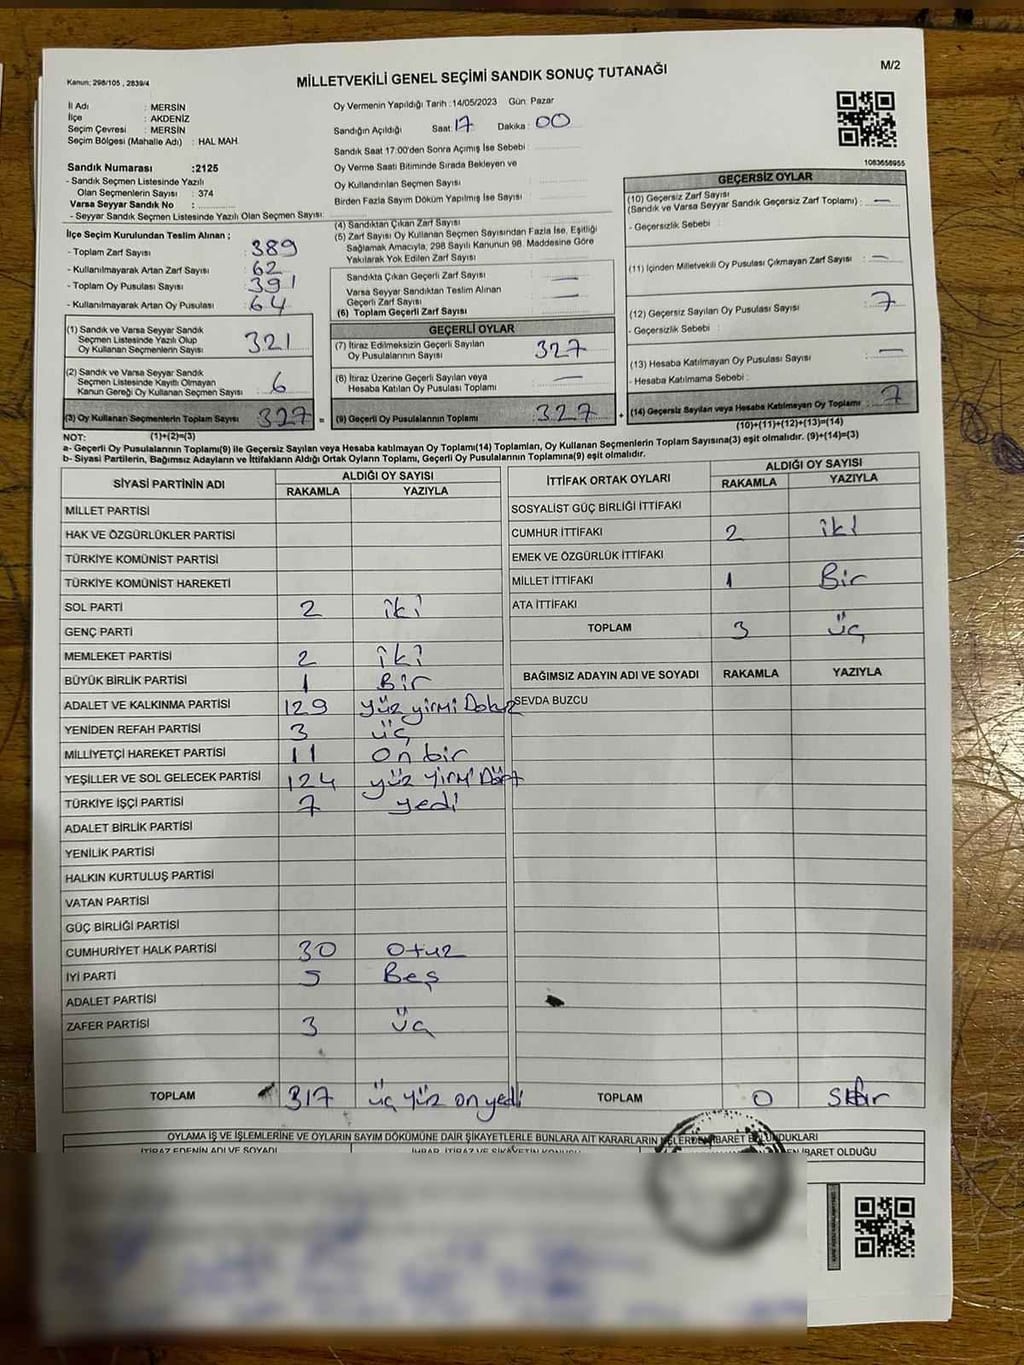 Kanun: 298/105 , 2839/4
MİLLETVEKİLİ GENEL SEÇİMİ SANDIK SONUÇ TUTANAĞI
M/2
İl Adı : MERSİN
İlçe : AKDENİZ
Seçim Çevresi : MERSİN
Seçim Bölgesi (Mahalle Adı) : HAL MAH.
Sandık Numarası :2125
- Sandık Seçmen Listesinde Yazılı
Olan Seçmenlerin Sayısı : 374
Varsa Seyyar Sandık No :
- Seyyar Sandık Seçmen Listesinde Yazılı Olan Seçmen Sayısı:
İlçe Seçim Kurulundan Teslim Alınan ;
- Toplam Zarf Sayısı : 389
- Kullanılmayarak Artan Zarf Sayısı : 62
- Toplam Oy Pusulası Sayısı : 391
- Kullanılmayarak Artan Oy Pusulası : 64
(1) Sandık ve Varsa Seyyar Sandık
Seçmen Listesinde Yazılı Olup
Oy Kullanan Seçmenlerin Sayısı 321
(2) Sandık ve Varsa Seyyar Sandık
Seçmen Listesinde Kayıtlı Olmayan
Kanun Gereği Oy Kullanan Seçmen Sayısı 6
(3) Oy Kullanan Seçmenlerin Toplam Sayısı 327 =
(1)+(2)=(3)
Oy Vermenin Yapıldığı Tarih :14/05/2023 Gün: Pazar
Sandığın Açıldığı Saat: 17 Dakika : 00
Sandık Saat 17:00'den Sonra Açımış İse Sebebi :
Oy Verme Saati Bitiminde Sırada Bekleyen ve
Oy Kullandırılan Seçmen Sayısı
Birden Fazla Sayım Döküm Yapılmış İse Sayısı
(4) Sandıktan Çıkan Zarf Sayısı
(5) Zarf Sayısı Oy Kullanan Seçmen Sayısından Fazla İse, Eşitliği
Sağlamak Amacıyla, 298 Sayılı Kanunun 98. Maddesine Göre
Yakılarak Yok Edilen Zarf Sayısı
Sandıkta Çıkan Geçerli Zarf Sayısı —
Varsa Seyyar Sandıktan Teslim Alınan
Geçerli Zarf Sayısı —
(6) Toplam Geçerli Zarf Sayısı
GEÇERLİ OYLAR
(7) İtiraz Edilmeksizin Geçerli Sayılan
Oy Pusulalarının Sayısı 327
(8) İtiraz Üzerine Geçerli Sayılan veya
Hesaba Katılan Oy Pusulası Toplamı —
(9) Geçerli Oy Pusulalarının Toplamı 327 +
1083658955
GEÇERSİZ OYLAR
(10) Geçersiz Zarf Sayısı
(Sandık ve Varsa Seyyar Sandık Geçersiz Zarf Toplamı) : —
- Geçersizlik Sebebi :
(11) İçinden Milletvekili Oy Pusulası Çıkmayan Zarf Sayısı —
(12) Geçersiz Sayılan Oy Pusulası Sayısı 7
- Geçersizlik Sebebi :
(13) Hesaba Katılmayan Oy Pusulası Sayısı —
- Hesaba Katılmama Sebebi :
(14) Geçersiz Sayılan veya Hesaba Katılmayan Oy Toplamı 7
(10)+(11)+(12)+(13)=(14)
NOT:
a- Geçerli Oy Pusulalarının Toplamı(9) ile Geçersiz Sayılan veya Hesaba katılmayan Oy Toplamı(14) Toplamları, Oy Kullanan Seçmenlerin Toplam Sayısına(3) eşit olmalıdır. (9)+(14)=(3)
b- Siyasi Partilerin, Bağımsız Adayların ve İttifakların Aldığı Ortak Oyların Toplamı, Geçerli Oy Pusulalarının Toplamına(9) eşit olmalıdır.
SİYASİ PARTİNİN ADI ALDIĞI OY SAYISI
RAKAMLA YAZIYLA
MİLLET PARTİSİ
HAK VE ÖZGÜRLÜKLER PARTİSİ
TÜRKİYE KOMÜNİST PARTİSİ
TÜRKİYE KOMÜNİST HAREKETİ
SOL PARTİ 2 iki
GENÇ PARTİ
MEMLEKET PARTİSİ 2 iki
BÜYÜK BİRLİK PARTİSİ 1 Bir
ADALET VE KALKINMA PARTİSİ 129 yüz yirmi Dokuz
YENİDEN REFAH PARTİSİ 3 üç
MİLLİYETÇİ HAREKET PARTİSİ 11 on bir
YEŞİLLER VE SOL GELECEK PARTİSİ 124 yüz yirmi Dört
TÜRKİYE İŞÇİ PARTİSİ 7 yedi
ADALET BİRLİK PARTİSİ
YENİLİK PARTİSİ
HALKIN KURTULUŞ PARTİSİ
VATAN PARTİSİ
GÜÇ BİRLİĞİ PARTİSİ
CUMHURİYET HALK PARTİSİ 30 otuz
İYİ PARTİ 5 Beş
ADALET PARTİSİ
ZAFER PARTİSİ 3 üç
TOPLAM 317 üç yüz on yedi
İTTİFAK ORTAK OYLARI ALDIĞI OY SAYISI
RAKAMLA YAZIYLA
SOSYALİST GÜÇ BİRLİĞİ İTTİFAKI
CUMHUR İTTİFAKI 2 iki
EMEK VE ÖZGÜRLÜK İTTİFAKI
MİLLET İTTİFAKI 1 Bir
ATA İTTİFAKI
TOPLAM 3 üç
BAĞIMSIZ ADAYIN ADI VE SOYADI RAKAMLA YAZIYLA
SEVDA BUZCU
TOPLAM 0 Sıfır
OYLAMA İŞ VE İŞLEMLERİNE VE OYLARIN SAYIM DÖKÜMÜNE DAİR ŞİKAYETLERLE BUNLARA AİT KARARLARIN NELERDEN İBARET BULUNDUKLARI
İTİRAZ EDENİN ADI VE SOYADI İHBAR, İTİRAZ VE ŞİKAYETİN KONUSU İBARET OLDUĞU